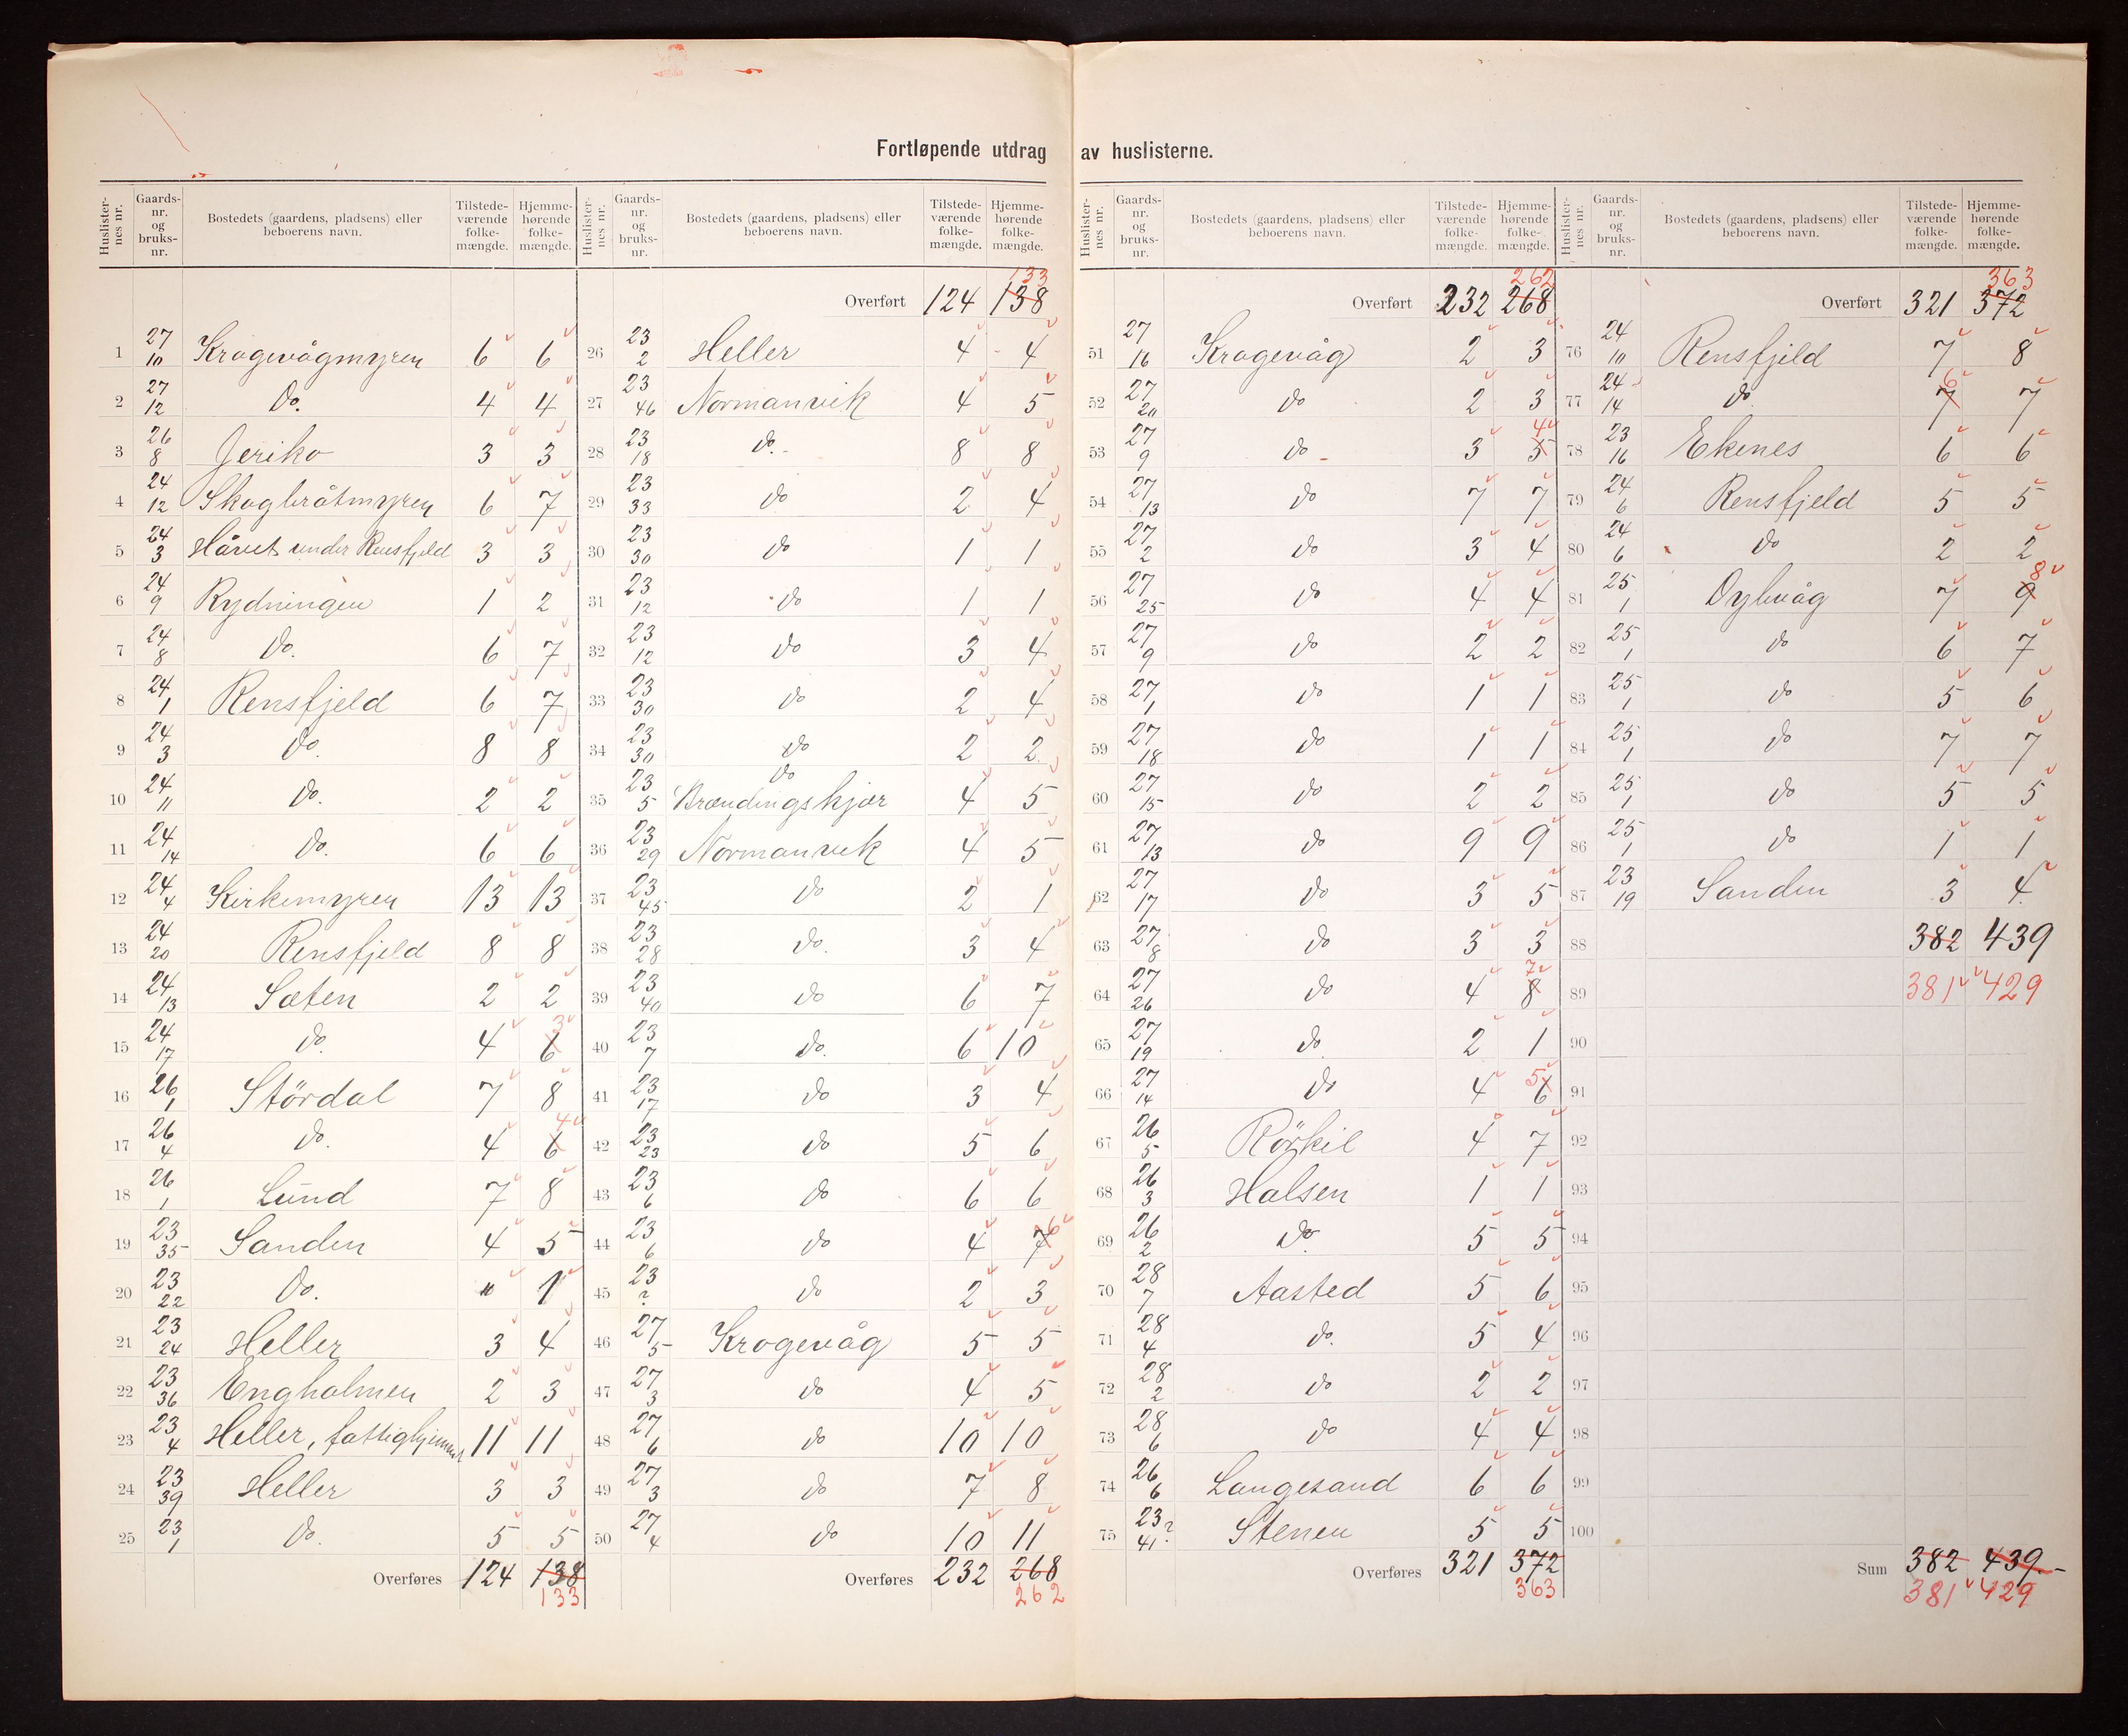 Fortløpende utdrag av huslisterne.
Huslisternes nr. Gaards-nr. og bruks-nr. Bostedets (gaardens, pladsens) eller beboerens navn. Tilstedeværende folkemængde. Hjemmehørende folkemængde.
1 27 10 Kragevågmyren 6 6
2 27 12 Do. 4 4
3 26 8 Jeriko 3 3
4 24 12 Skogbråtmyren 6 7
5 24 3 Håvet under Rensfjeld 3 3
6 24 9 Rydningen 1 2
7 24 8 Do. 6 7
8 24 1 Rensfjeld 6 7
9 24 3 Do. 8 8
10 24 11 Do. 2 2
11 24 14 Do. 6 6
12 24 4 Kirkemyren 13 13
13 24 20 Rensfjeld 8 8
14 24 13 Sæten 2 2
15 24 17 Do. 4 6 3
16 26 1 Stördal 7 8
17 26 4 Do. 4 6 4
18 26 1 Lund 7 8
19 23 35 Sanden 4 5
20 23 22 Do. " 1
21 23 24 Heller 3 4
22 23 36 Engholmen 2 3
23 23 4 Heller, fattighjemmet 11 11
24 23 39 Heller 3 3
25 23 1 Do. 5 5
Overføres 124 138
133
Huslisternes nr. Gaards-nr. og bruks-nr. Bostedets (gaardens, pladsens) eller beboerens navn. Tilstedeværende folkemængde. Hjemmehørende folkemængde.
133
Overført 124 138
26 23 2 Heller 4 4
27 23 46 Normanvik 4 5
28 23 18 do. 8 8
29 23 33 do 2 4
30 23 30 do 1 1
31 23 12 do 1 1
32 23 12 do 3 4
33 23 30 do 2 4
34 23 30 do 2 2
do
35 23 5 Brændingskjær 4 5
36 23 29 Normanvik 4 5
37 23 45 do 2 1
38 23 28 do. 3 4
39 23 40 do 6 7
40 23 7 do. 6 10
41 23 17 do 3 4
42 23 23 do 5 6
43 23 6 do 6 6
44 23 6 do 4 7 6
45 23 ? do 2 3
46 27 5 Krogevåg 5 5
47 27 3 do 4 5
48 27 6 do 10 10
49 27 3 do 7 8
50 27 4 do 10 11
Overføres 232 268
262
Huslisternes nr. Gaards-nr. og bruks-nr. Bostedets (gaardens, pladsens) eller beboerens navn. Tilstedeværende folkemængde. Hjemmehørende folkemængde.
262
Overført 232 268
51 27 16 Kragevåg 2 3
52 27 20 do 2 3
53 27 9 do 3 5 4
54 27 13 do 7 7
55 27 2 do 3 4
56 27 25 do 4 4
57 27 9 do 2 2
58 27 1 do 1 1
59 27 18 do 1 1
60 27 15 do 2 2
61 27 13 do 9 9
62 27 17 do 3 5
63 27 8 do 3 3
64 27 26 do 4 8 7
65 27 19 do 2 1
66 27 14 do 4 6 5
67 26 5 Rörkil 4 7
68 26 3 Halsen 1 1
69 26 2 Do. 5 5
70 28 7 Aasted 5 6
71 28 4 do. 5 4
72 28 2 do 2 2
73 28 6 do 4 4
74 26 6 Langesand 6 6
75 23? 41. Stenen 5 5
Overføres 321 372
363
Huslisternes nr. Gaards-nr. og bruks-nr. Bostedets (gaardens, pladsens) eller beboerens navn. Tilstedeværende folkemængde. Hjemmehørende folkemængde.
363
Overført 321 372
76 24 10 Rensfjeld 7 8
77 24 14 do 7 6 7
78 23 16 Ekenes 6 6
79 24 6 Rensfjeld 5 5
80 24 6 do 2 2
81 25 1 Dybvåg 7 9 8
82 25 1 do 6 7
83 25 1 do 5 6
84 25 1 do 7 7
85 25 1 do 5 5
86 25 1 do 1 1
87 23 19 Sanden 3 4
88 382 439
89 381 429
90
91
92
93
94
95
96
97
98
99
100
Sum 382 439
381 429